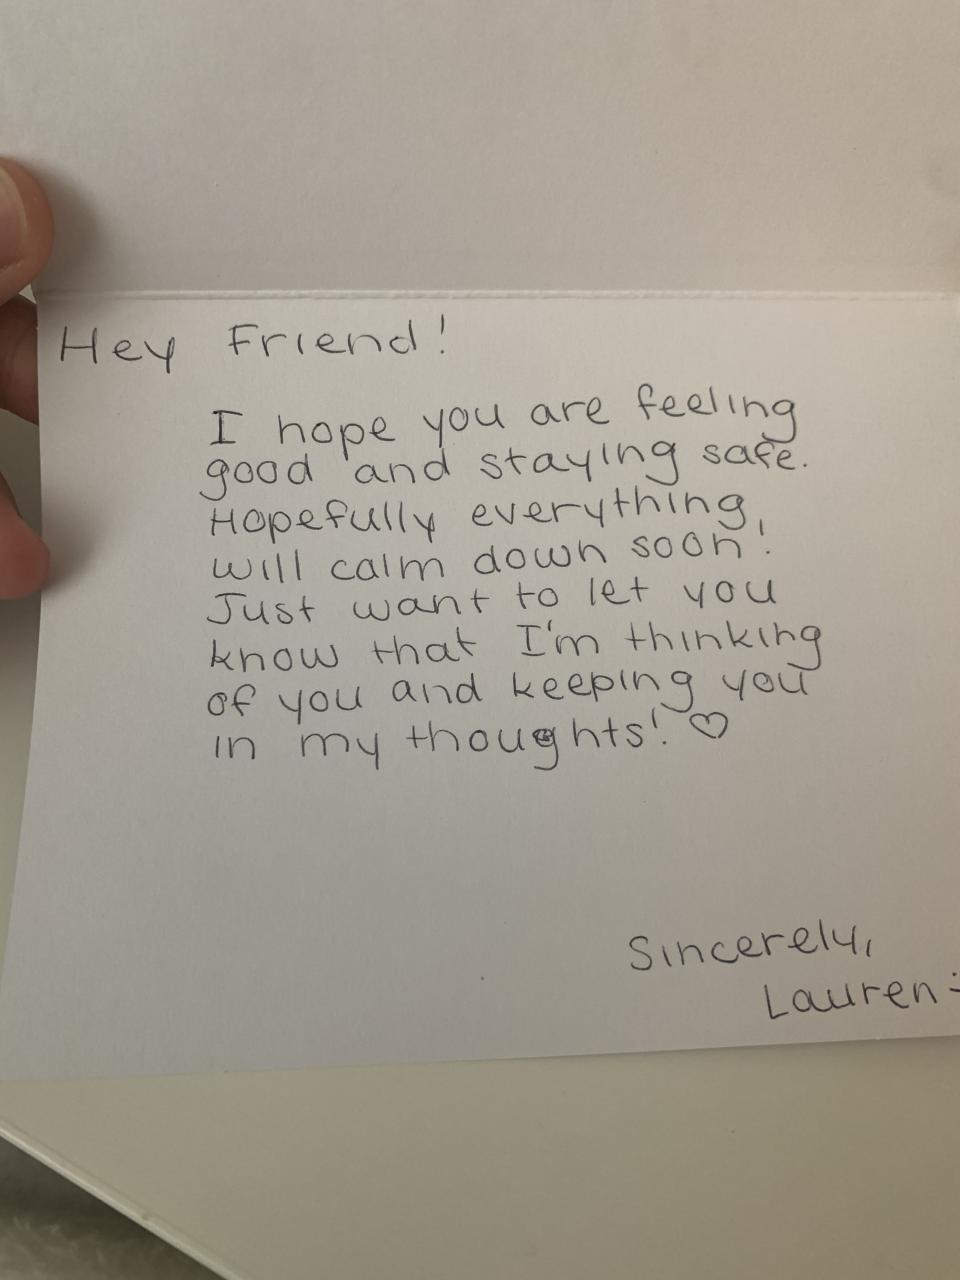 Hey Friend!
I hope you are feeling
good and staying safe.
Hopefully everything
will calm down soon!
Just want to let you
know that I'm thinking
of you and keeping you
in my thoughts! ♡
Sincerely,
Lauren :